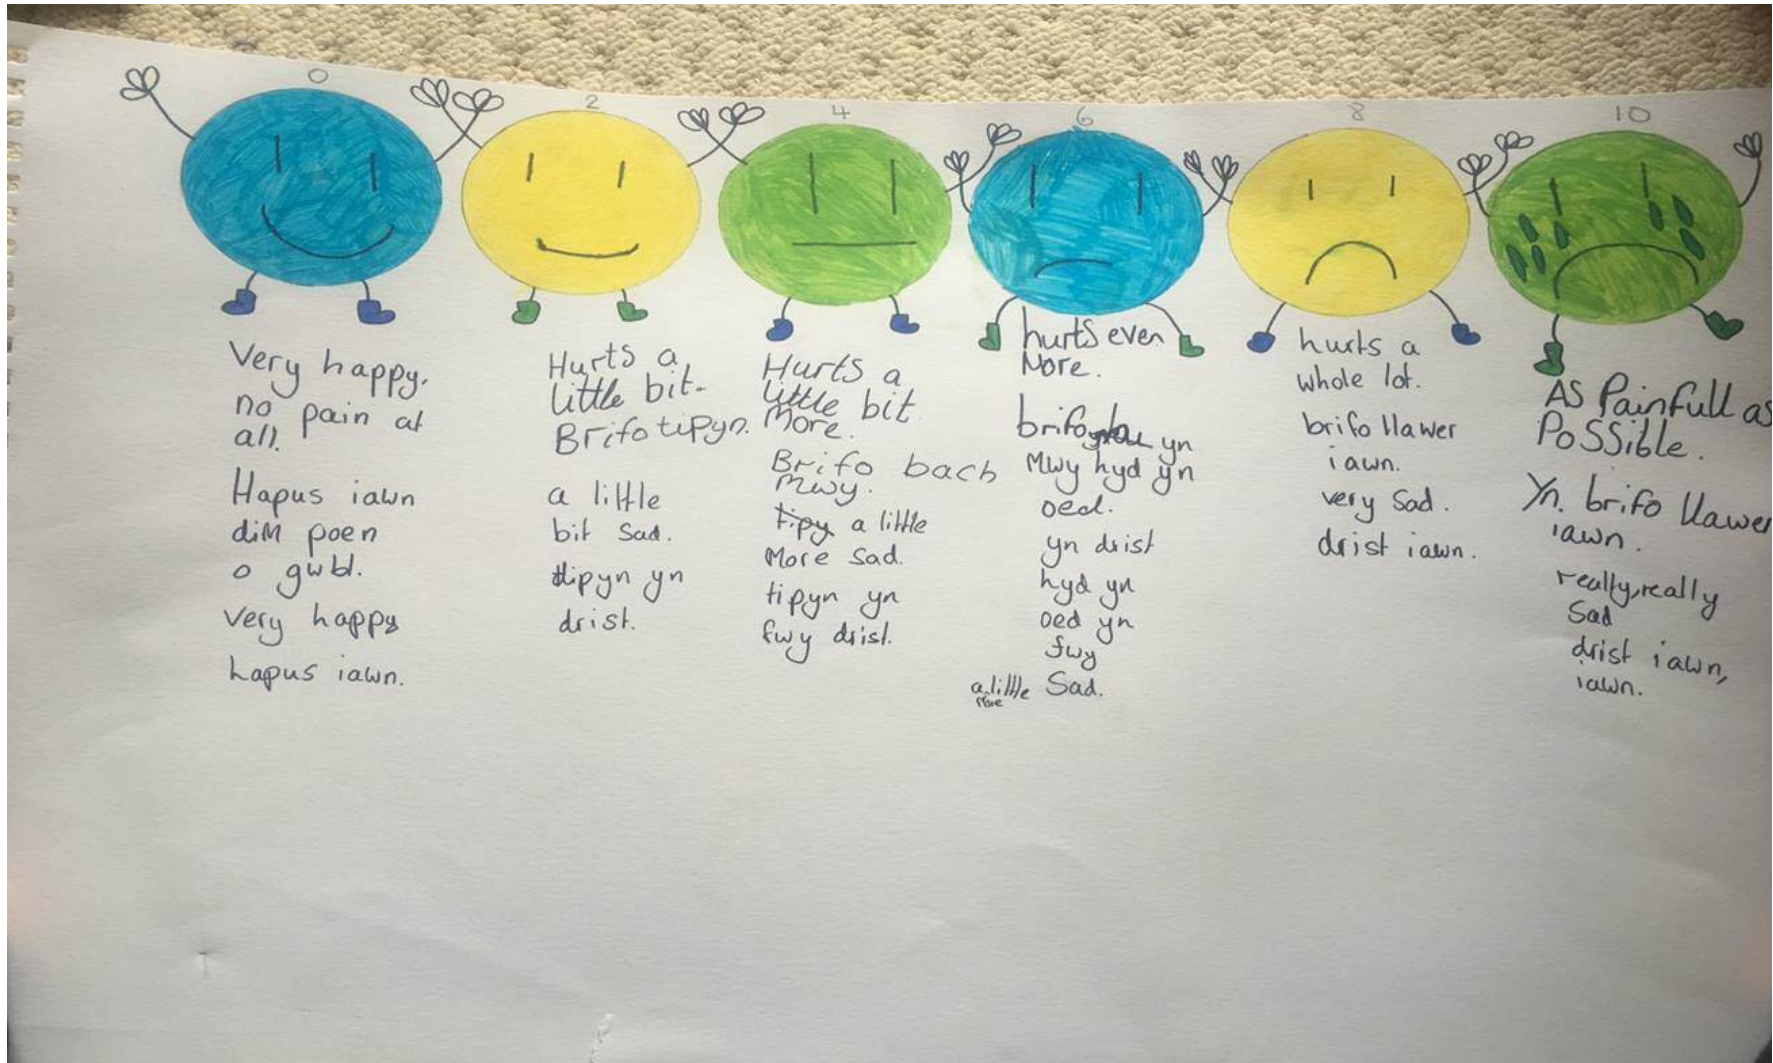 0
2
4
6
8
10
Very happy.
no pain at
all.
Hapus iawn
dim poen
o gwbl.
very happy
hapus iawn.
Hurts a
little bit.
Brifo tipyn.
a little
bit sad.
tipyn yn
drist.
Hurts a
little bit
More.
Brifo bach
Mwy.
tipy a little
More sad.
tipyn yn
fwy drist.
hurts even
More.
brifo yn
Mwy hyd yn
oed.
yn drist
hyd yn
oed yn
fwy
a little More Sad.
hurts a
whole lot.
brifo llawer
iawn.
very sad.
drist iawn.
AS Painfull as
PoSSible.
Yn. brifo llawer
iawn.
really, really
Sad
drist iawn,
iawn.